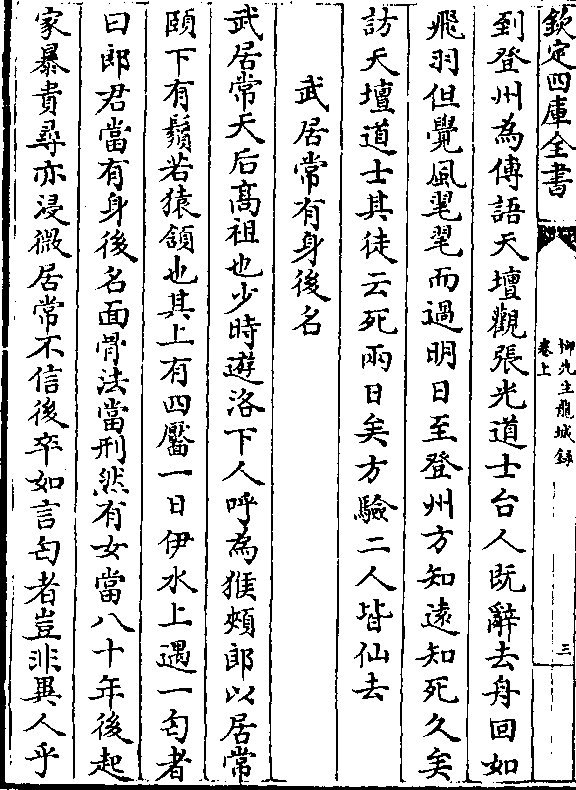 欽定四庫全書
柳先生龍城録
卷上
三
到登州為傳語天壇觀張光道士台人既辭去舟回如
飛羽但覺風毣毣而過明日至登州方知逺知死久矣
訪天壇道士其徒云死兩日矣方驗二人皆仙去
武居常有身後名
武居常天后髙祖也少時遊洛下人呼為猴頰郎以居常
頤下有鬚若猿頷也其上有四靨一日伊水上遇一匄者
曰郎君當有身後名面骨法當刑然有女當八十年後起
家暴貴尋亦浸微居常不信後卒如言匄者豈非異人乎